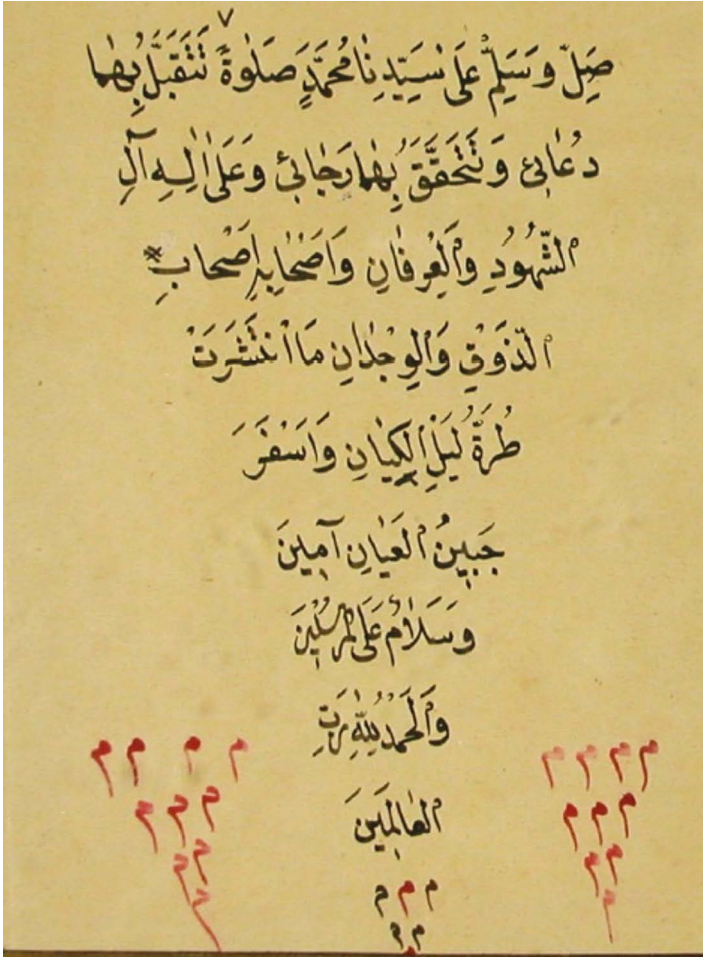 صَلِّ وَسَلِّمْ عَلَى سَيِّدِنَا مُحَمَّدٍ صَلٰوةً تَتَقَبَّلُ بِهَا
دُعَائِي وَتَتَحَقَّقُ بِهَا رَجَائِي وَعَلَى اٰلِهِ آلِ
الشُّهُودِ وَالْعِرْفَانِ وَاَصْحَابِهِ اَصْحَابِ
الذَّوْقِ وَالْوِجْدَانِ مَا انْتَشَرَتْ
طُرَّةُ لَيْلِ الْكِيَانِ وَاَسْفَرَ
جَبِينُ الْعَيَانِ آمِينَ
وَسَلَامٌ عَلَى الْمُرْسَلِينَ
وَالْحَمْدُ لِلّٰهِ رَبِّ
الْعَالَمِينَ
م م م م م م م م
م م م م م م
م م م م
م م م م م
م م